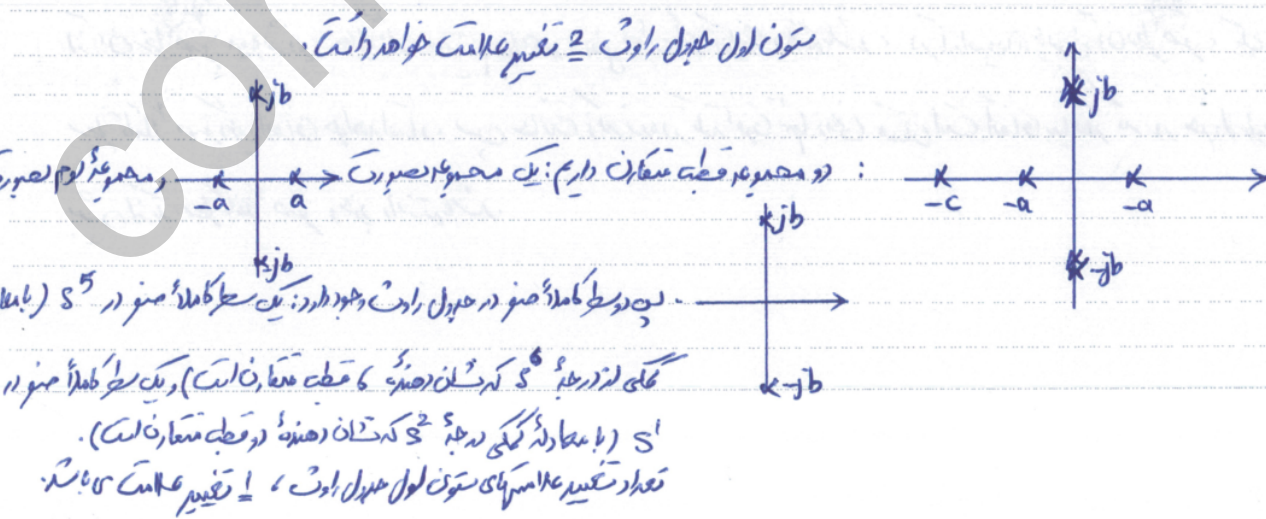 ستون اول جدول راوث 2 تغییر علامت خواهد داشت.
jb
jb
: دو مجموعه قطب متقارن داریم: یک مجموعه بصورت
و مجموعه دوم بصورت
-a a
-c -a -a
-jb
-jb
jb
پس دو سطر کاملاً صفر در جدول راوث وجود دارد: یک سطر کاملاً صفر در s^5 (با
کمکی از درجهٔ s^6 که نشان دهندهٔ 6 قطب متقارن است) و یک سطر کاملاً صفر در
-jb
s^1 (با معادلهٔ کمکی درجهٔ s^2 که نشان دهندهٔ دو قطب متقارن است).
تعداد تغییر علامتهای ستون اول جدول راوث، 1 تغییر علامت می باشد.